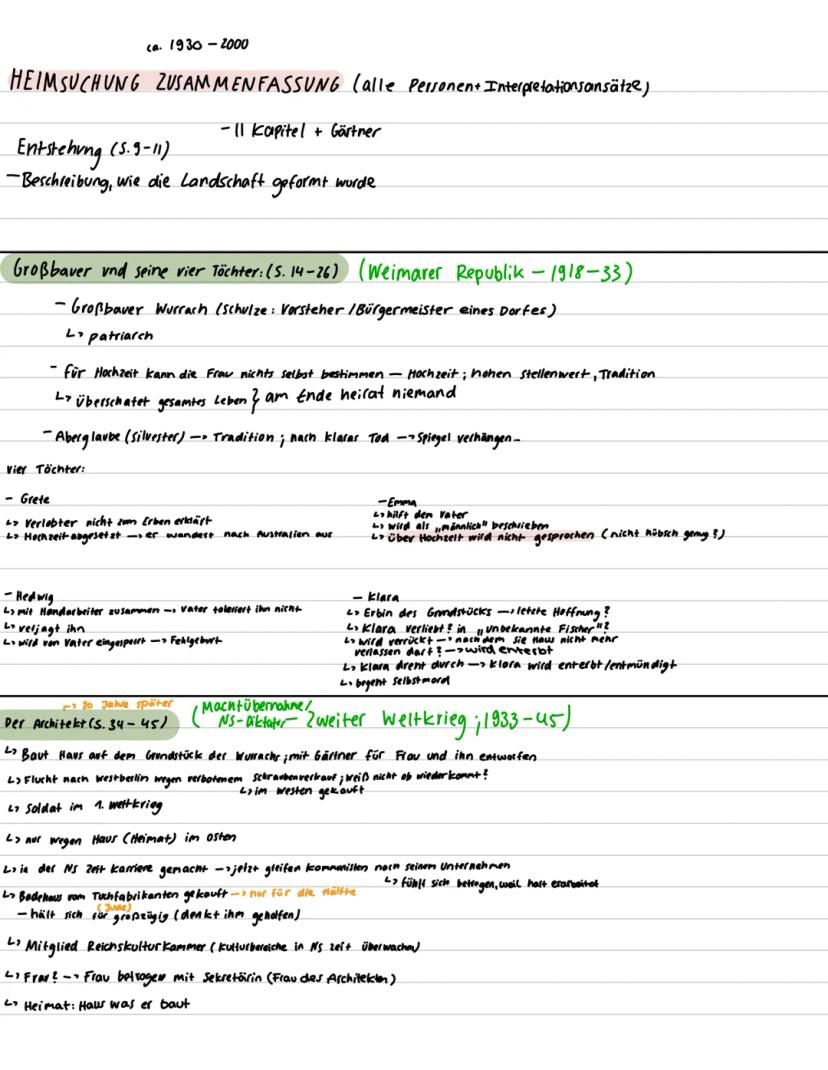 ca. 1930 - 2000
HEIMSUCHUNG ZUSAMMENFASSUNG (alle Personen + Interpretationsansätze)
- 11 Kapitel + Gärtner
Entstehung (S. 9-11)
- Beschreibung, wie die Landschaft geformt wurde
Großbauer und seine vier Töchter: (S. 14-26) (Weimarer Republik - 1918-33)
- Großbauer Wurrach (Schulze: Vorsteher / Bürgermeister eines Dorfes)
↳ patriarch
- für Hochzeit kann die Frau nichts selbst bestimmen - Hochzeit; hohen Stellenwert, Tradition
↳ überschatet gesamtes Leben } am Ende heirat niemand
- Aberglaube (Silvester) → Tradition; nach Klaras Tod → Spiegel verhängen...
vier Töchter:
- Grete
↳ Verlobter nicht zum Erben erklärt
↳ Hochzeit abgesetzt → er wandert nach Australien aus
- Emma
↳ hilft dem Vater
↳ wird als „männlich" beschrieben
↳ über Hochzeit wird nicht gesprochen (nicht hübsch genug?)
- Hedwig
↳ mit Handarbeiter zusammen → Vater toleriert ihn nicht
↳ verjagt ihn
↳ wird von Vater eingesperrt → Fehlgeburt
- Klara
↳ Erbin des Grundstücks → letzte Hoffnung?
↳ Klara verliebt? in „unbekannte Fischer"?
↳ wird verrückt → nachdem sie Haus nicht mehr
verlassen darf? → wird enterbt
↳ Klara dreht durch → Klara wird enterbt/entmündigt
↳ begeht Selbstmord
↱ 20 Jahre später
Der Architekt (S. 34-45) (Machtübernahme/
NS-Diktatur - Zweiter Weltkrieg; 1933-45)
↳ Baut Haus auf dem Grundstück der Wurrachs; mit Gärtner für Frau und ihn entworfen
↳ Flucht nach Westberlin wegen verbotenem Schraubenverkauf; weiß nicht ob wiederkommt?
↳ im Westen gekauft
↳ Soldat im 1. Weltkrieg
↳ nur wegen Haus (Heimat) im Osten
↳ in der NS Zeit Karriere gemacht → jetzt greifen Kommunisten nach seinem Unternehmen
↳ fühlt sich betrogen, weil hart erarbeitet
↳ Badehaus vom Tuchfabrikanten gekauft → nur für die Hälfte
(Jude)
- hält sich für großzügig (denkt ihm geholfen)
↳ Mitglied Reichskulturkammer (Kulturbereiche in NS Zeit überwachen)
↳ Frau? → Frau betrogen mit Sekretärin (Frau des Architekten)
↳ Heimat: Haus was er baut